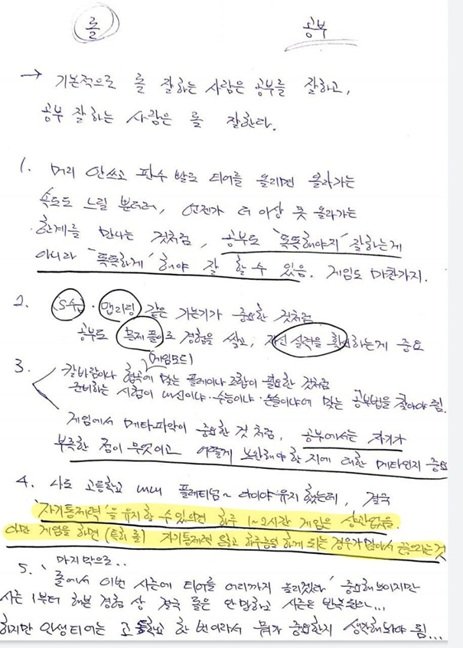 롤 공부
→ 기본적으로 롤 잘하는 사람은 공부를 잘하고,
공부 잘하는 사람은 롤 잘한다.
1. 머리 안쓰고 판수 발로 티어를 올리면 올라가는
속도도 느릴 뿐더러, 언젠가 더 이상 못 올라가는
한계를 만나는 것처럼, 공부도 "똑똑해야지" 잘하는게
아니라 "똑똑하게" 해야 잘 할 수 있음. 게임도 마찬가지.
2. CS수급·맵리딩 같은 기본기가 중요한 것처럼
공부도 문제풀이로 경험을 쌓고, 자신 실력을 확인하는게 중요
(게임모드)
3. 칼바람이냐 협곡에 맞는 플레이나 조합이 필요한 것처럼
준비하는 시험이 내신이냐·수능이냐·논술이냐에 맞는 공부법을 찾아야 됨.
게임에서 메타파악이 중요한 것처럼, 공부에서는 자기가
부족한 점이 무엇이고 어떻게 보완해야 한지에 대한 메타인지 중요
4. 나도 고등학교 내내 플레티넘~다이아 유지했는데, 결국
'자기통제력'을 유지할 수 있으면 하루 1~2시간 게임은 상관없음.
다만 게임을 하면 (특히 롤) 자기통제력 잃고 하루종일 하게 되는 경우가 많아서 끊으라는 것
5. 마지막으로..
롤에서 이번 시즌에 티어를 어디까지 올리겠다 중요해보이지만
시즌 1부터 해본 경험 상 결국 롤은 안 망하고 시즌은 반복된다...
하지만 인생티어는 고등학교 한 번이라서 뭐가 중요한지 생각해봐야 됨...